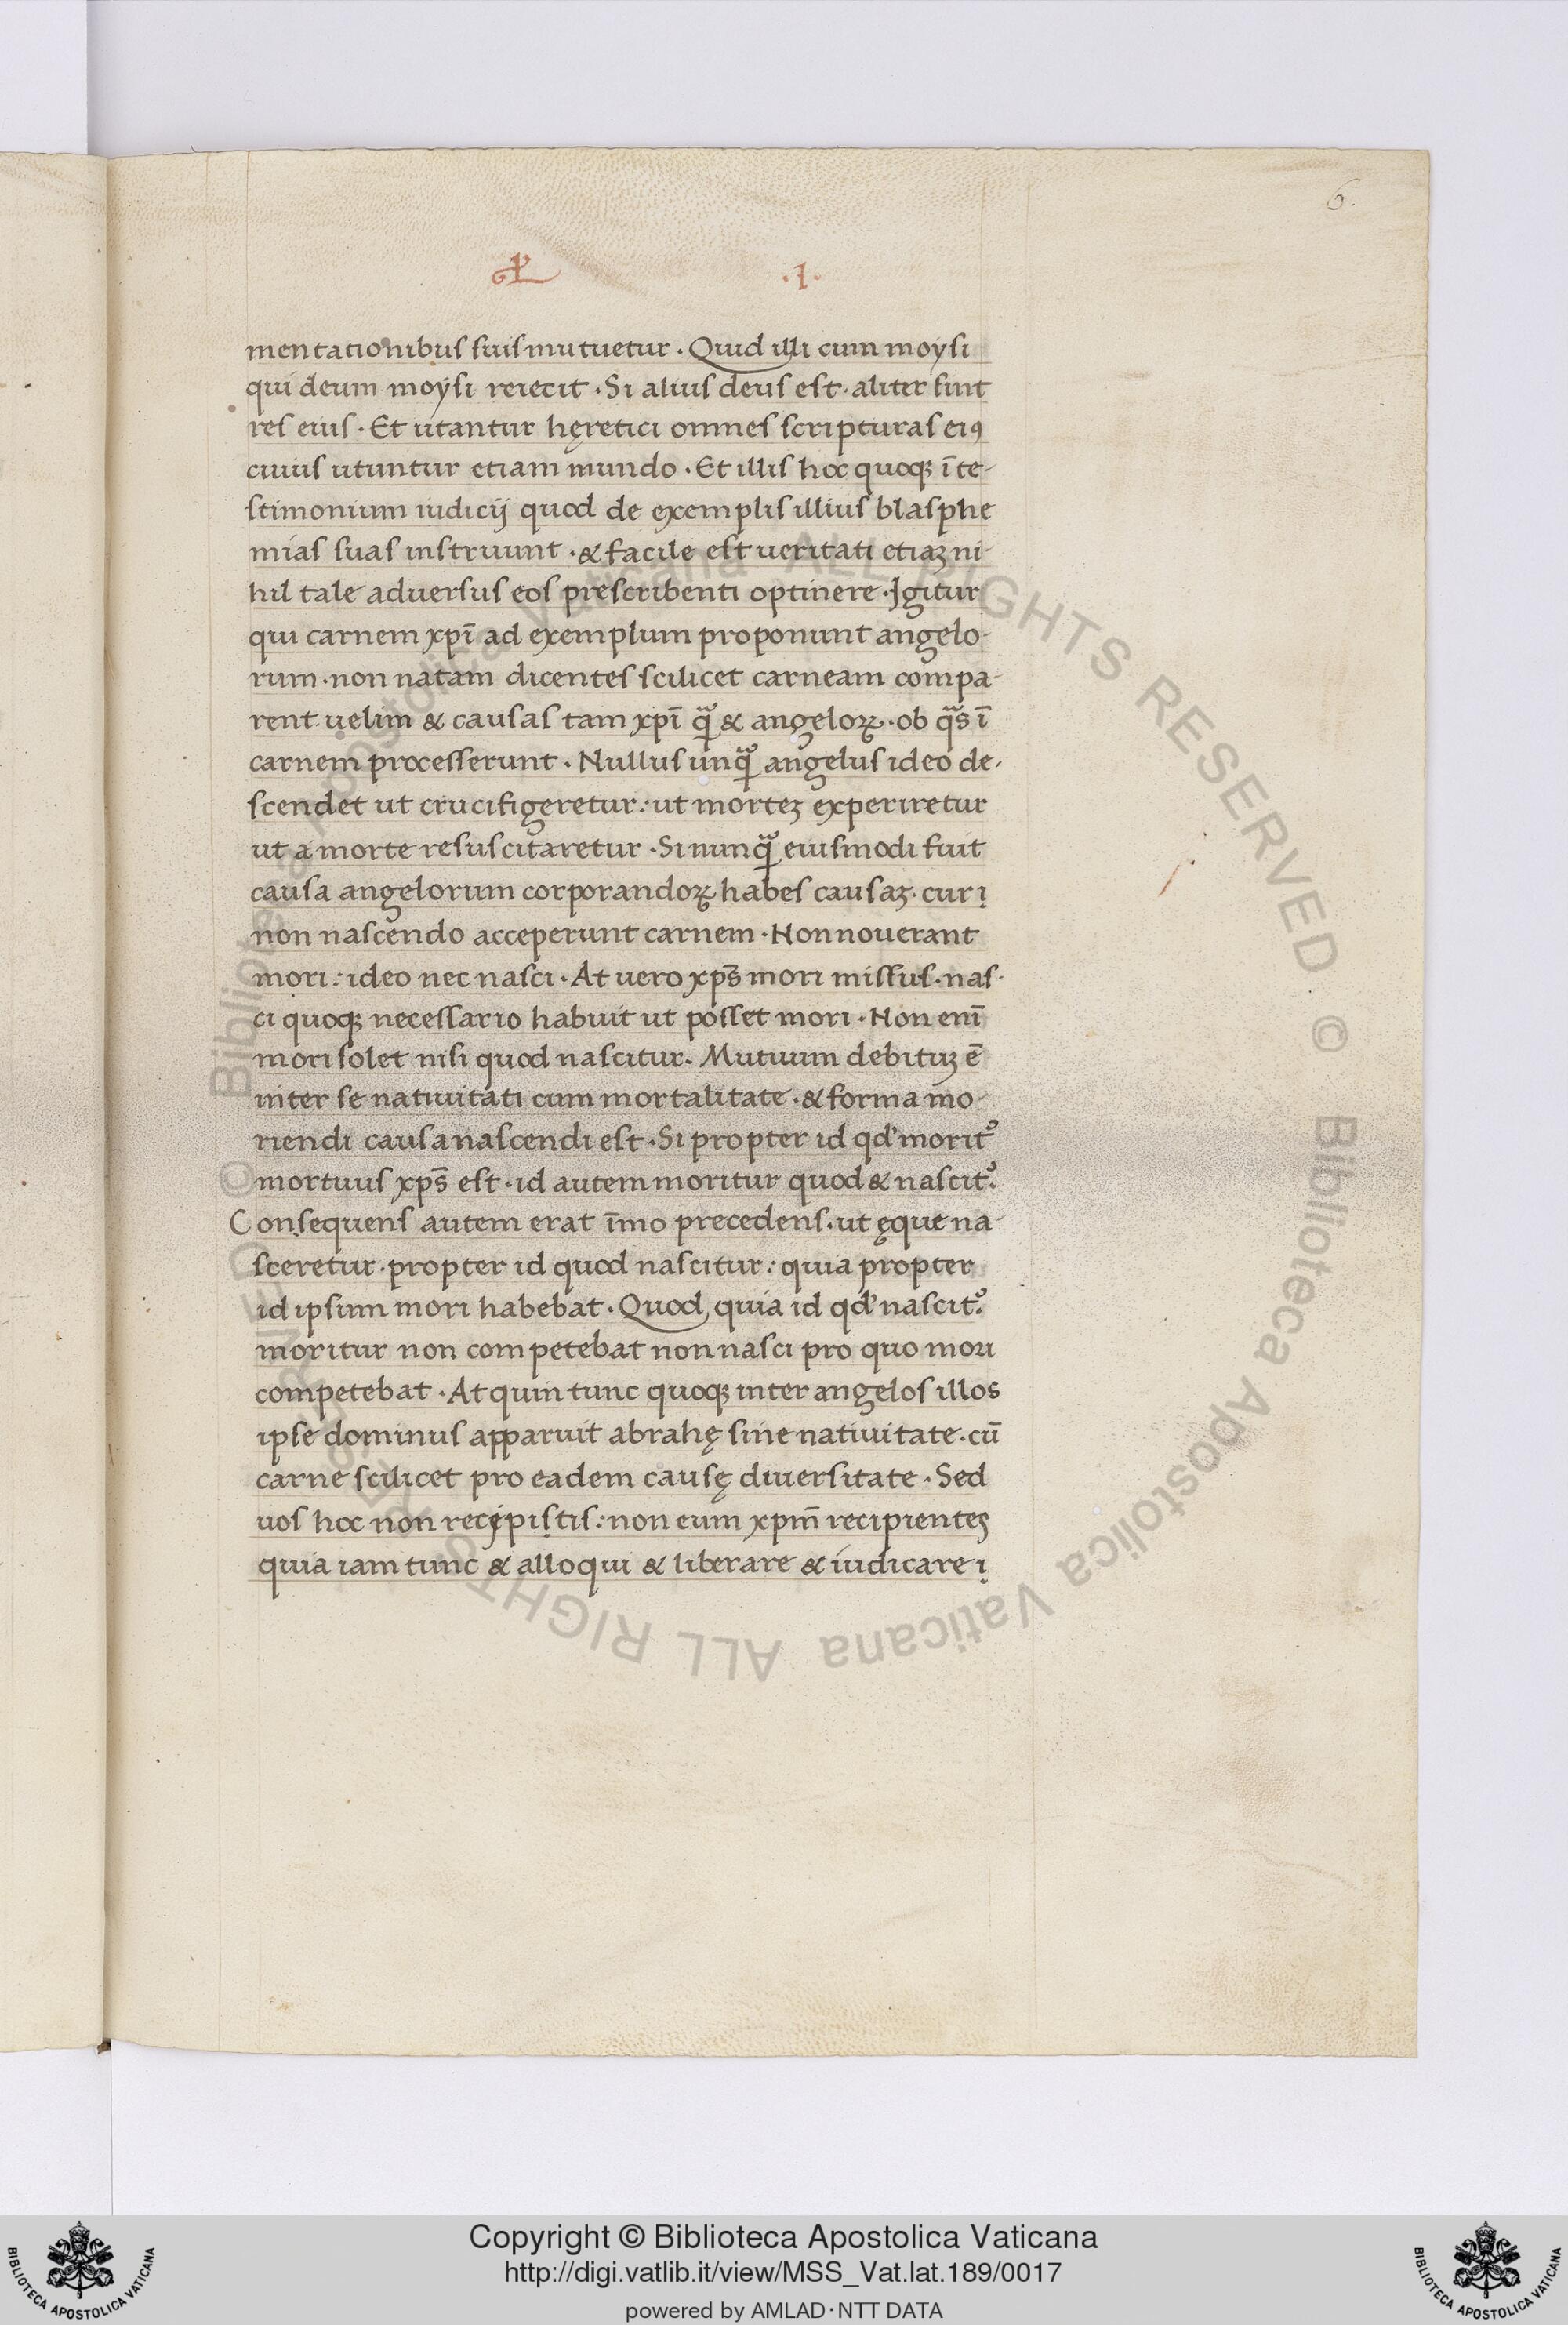 6.
·I·
mentationibus suis mutuetur. Quid illi cum moysi
qui deum moysi reiecit. Si alius deus est. aliter sunt
res eius. Et utantur hęretici omnes scripturas ei9
cuius utuntur etiam mundo. Et illis hoc quoqꝫ ī te-
stimonium iudicij quod de exemplis illius blasphe
mias suas instruunt. & facile est ueritati etiaꝫ ni-
hil tale aduersus eos prescribenti optinere. Igitur
qui carnem xp̄i ad exemplum proponunt angelo-
rum. non natam dicentes scilicet carneam compa-
rent uelim & causas tam xp̄i q̣ͣ & angeloꝝ. ob qͣs ī
carnem processerunt. Nullus unqͣ angelus ideo de-
scendet ut crucifigeretur: ut morteꝫ experiretur
ut a morte resuscitaretur. Si nunqͣ eiusmodi fuit
causa angelorum corporandoꝝ habes causaꝫ. cur ị
non nascendo acceperunt carnem. Non nouerant
mori: ideo nec nasci. At uero xp̄s mori missus. nas-
ci quoqꝫ necessario habuit ut posset mori. Non enī
mori solet nisi quod nascitur. Mutuum debituꝫ ē
inter se natiuitati cum mortalitate. & forma mo-
riendi causa nascendi est. Si propter id qđ morit᷒
mortuus xp̄s est. id autem moritur quod & nascit᷒.
Consequens autem erat īmo precedens. ut ęque na-
sceretur. propter id quod nascitur: quia propter
id ipsum mori habebat. Quod quia id qđ nascit᷒.
moritur non competebat non nasci pro quo mori
competebat. At quin tunc quoqꝫ inter angelos illos
ipse dominus apparuit abrahę sine natiuitate. cū
carne scilicet pro eadem causę diuersitate. Sed
uos hoc non recipistis: non eum xp̄m recipientes
quia iam tunc & alloqui & liberare & iudicare ị
© Biblioteca Apostolica Vaticana ALL RIGHTS RESERVED
© Biblioteca Apostolica Vaticana ALL RIGHTS RESERVED
Copyright © Biblioteca Apostolica Vaticana
http://digi.vatlib.it/view/MSS_Vat.lat.189/0017
powered by AMLAD·NTT DATA
BIBLIOTECA APOSTOLICA VATICANA
BIBLIOTECA APOSTOLICA VATICANA